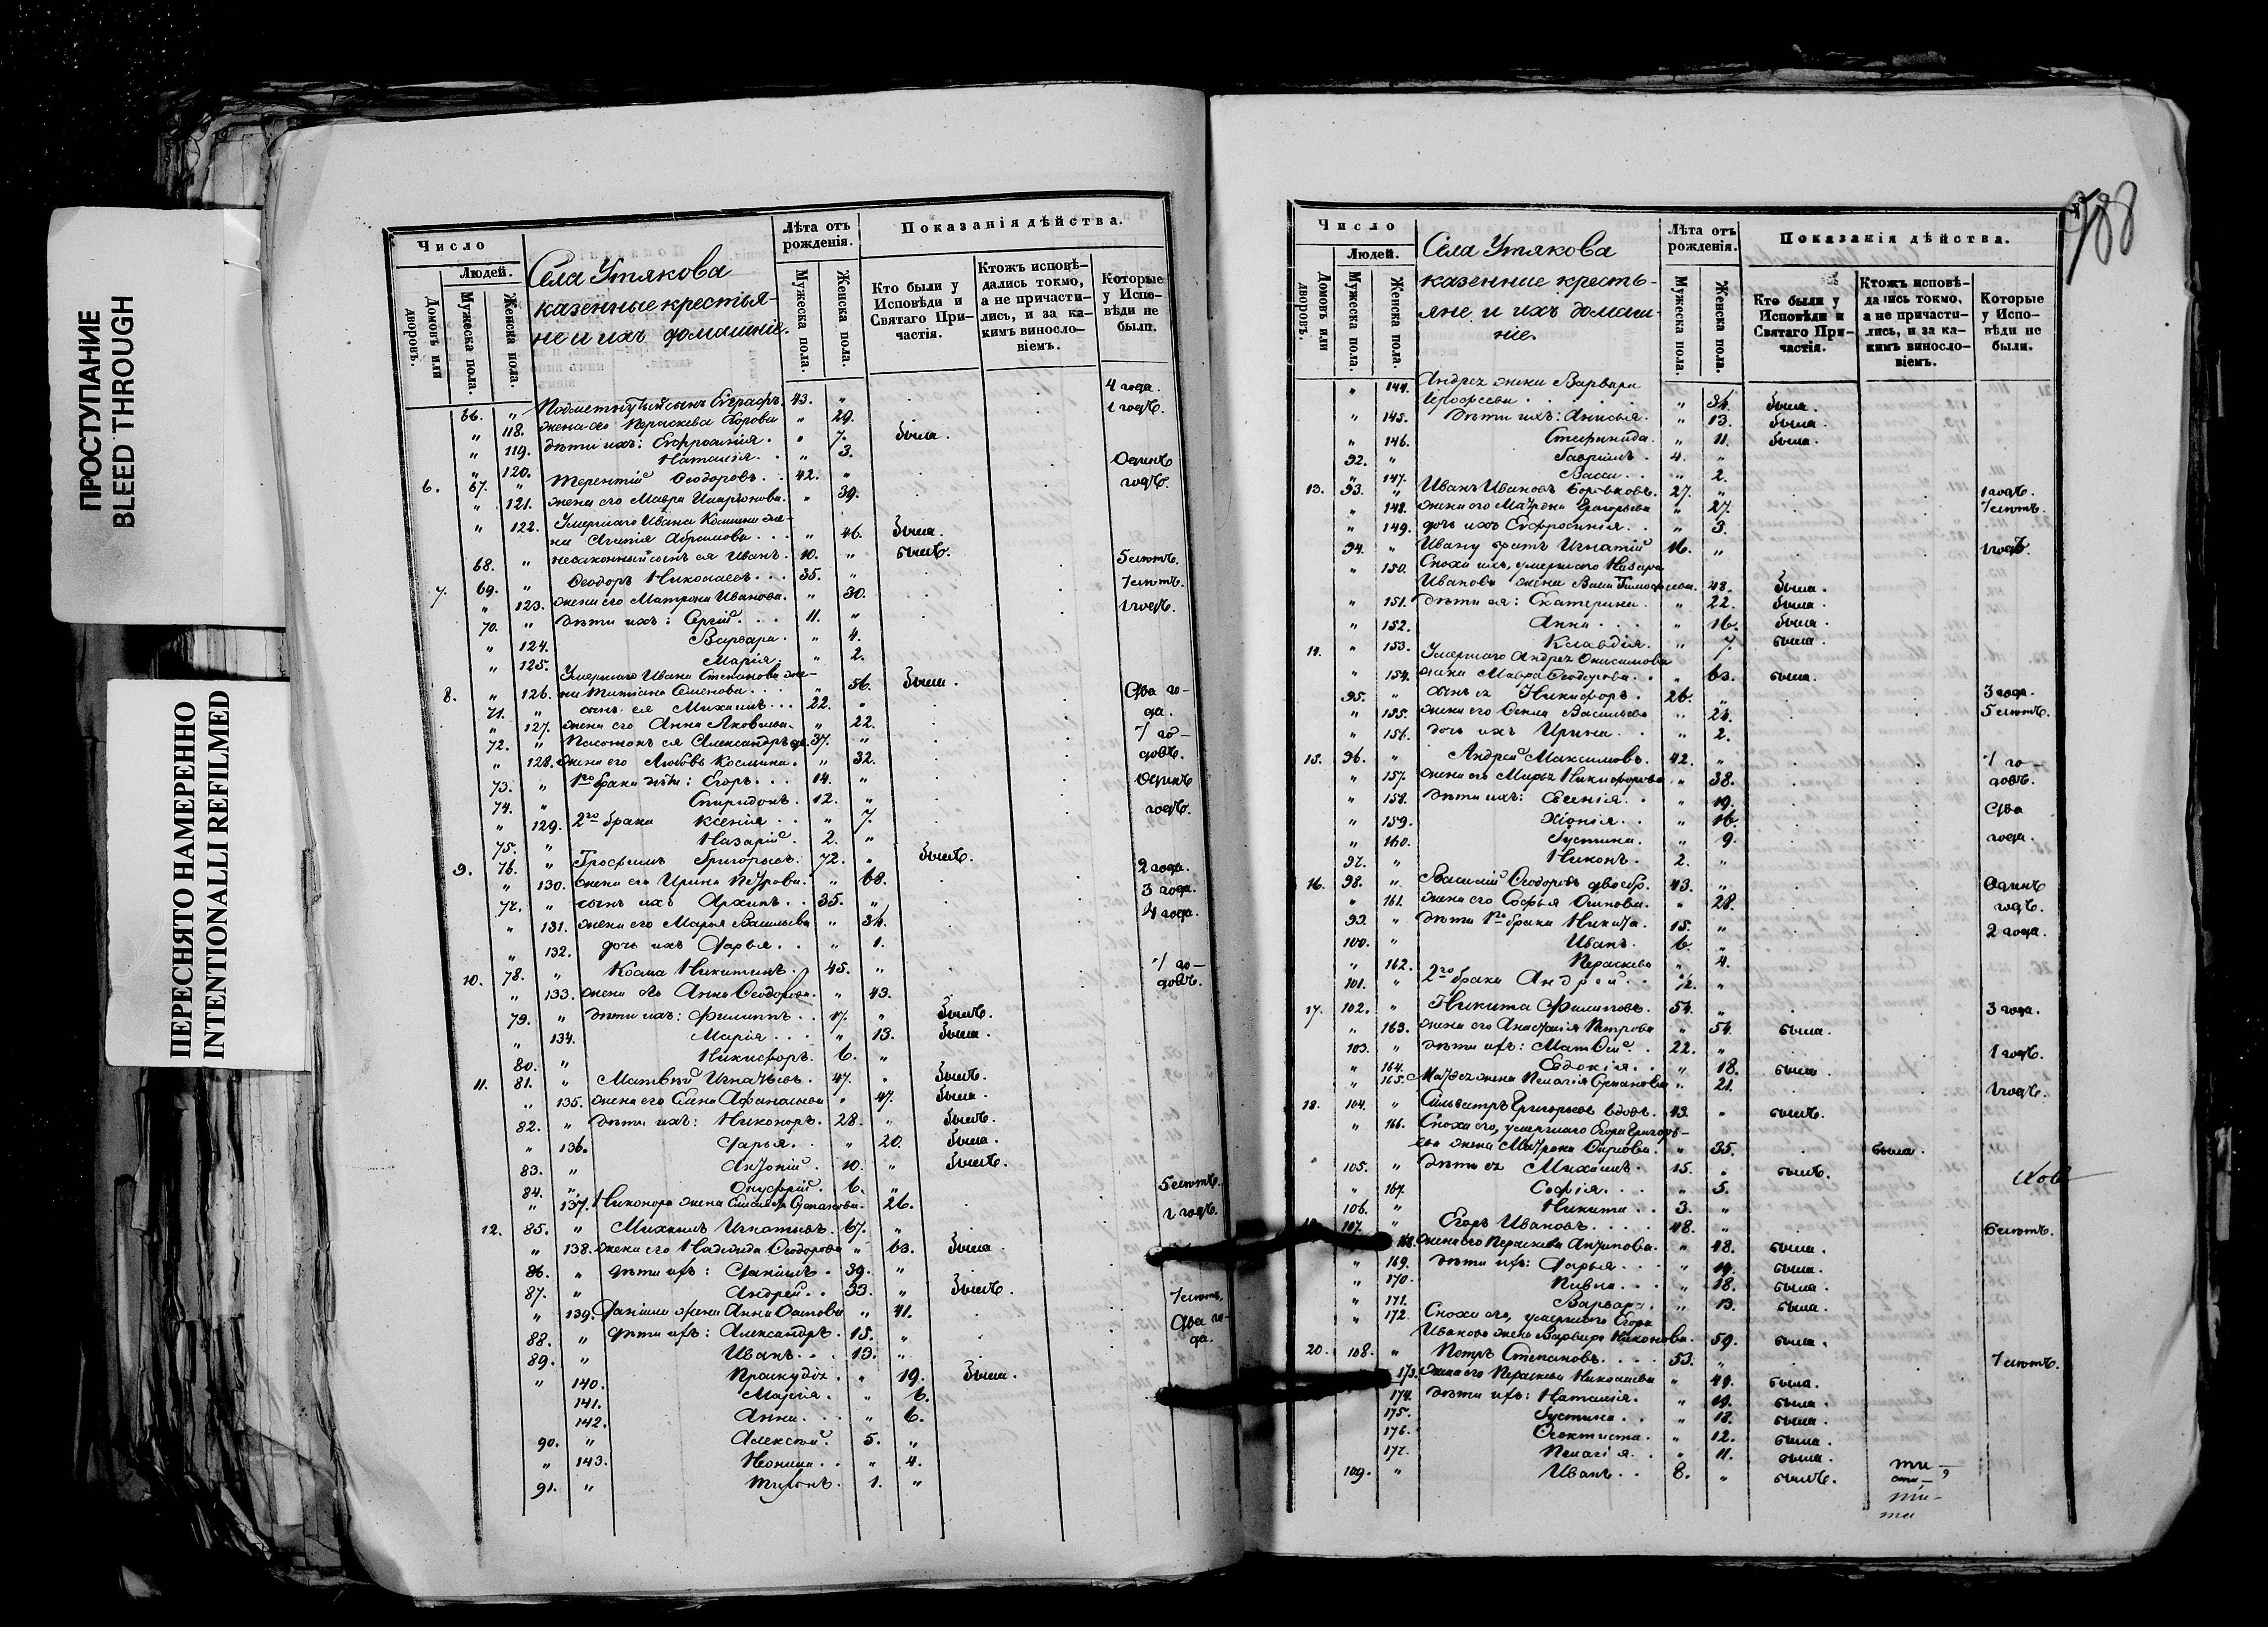 ПРОСТУПАНИЕ
BLEED THROUGH
ПЕРЕСНЯТО НАМЕРЕННО
INTENTIONALLI REFILMED
Число
Людей.
Домовъ или дворовъ.
Мужеска пола.
Женска пола.
Села Утякова
казенные крестья-
не и ихъ домашніе.
Лѣта отъ рожденія.
Мужеска пола.
Женска пола.
Показанія дѣйства.
Кто были у Исповѣди и Святаго Причастія.
Ктожъ исповѣдались токмо, а не причастились, и за какимъ винословіемъ.
Которые у Исповѣди не были.
66. " сынъ Евграфъ. 43. " 4 года.
" 118. жена его Параскева Егорова " 29. 1 годъ.
" 119. дѣти ихъ: Евфросинія. " 7. была.
" 120. Наталія. " 3.
6. 67. " Терентій Ѳеодоровъ. 42. " Одинъ
" 121. жена его Мавра Иларіонова. " 39. годъ.
" 122. Умершаго Ивана Косьмина же-
на Агапія Абрамова. " 46. была.
68. " незаконный сынъ ея Иванъ. 10. " былъ.
7. 69. " Ѳеодоръ Николаевъ. 35. " 5 лѣтъ.
" 123. жена его Матрона Иванова. " 30. 7 лѣтъ.
70. " Дѣти ихъ: Сергій. 11. " 1 годъ.
" 124. Варвара. " 4.
" 125. Марія. " 2.
Умершаго Ивана Степанова же-
8. " 126. на Татіана Семенова. " 56. была.
71. " сынъ ея Михаилъ. 22. " Два го-
" 127. жена его Анна Яковлева. " 22. да.
72. " ея Александръ 37. " 7 го-
" 128. жена его Любовь Космина. " 32. довъ.
73. " 1го брака дѣти: Егоръ. 14. " Одинъ
74. " Спиридонъ. 12. " годъ.
" 129. 2го брака Ксенія " 7.
75. " Назарій. 2. "
9. 76. " Трофимъ Григорьевъ. 72. " былъ.
" 130. жена его Ирина Петрова. " 68. 2 года.
77. " сынъ ихъ Архипъ. 35. " 3 года.
" 131. жена его Марья Васильева " 34. 4 года.
" 132. дочь ихъ Дарья. " 1.
10. 78. " Косма Никитинъ. 45. " 7 го-
" 133. жена его Анна Ѳеодорова. " 43. довъ.
79. " Дѣти ихъ: Филиппъ. 17. " былъ.
" 134. Марія " 13. была.
80. " Никифоръ. 6. "
11. 81. " Матвѣй Игнатьевъ. 47. " былъ.
" 135. жена его Елена Афанасьева " 47. была.
82. " Дѣти ихъ: Никоноръ. 28. " былъ.
" 136. Дарья. " 20. была.
83. " Антоній. 10. " былъ.
84. " Онуфрій. 6. "
" 137. Никонора жена " 26. 5 лѣтъ.
12. 85. " Михаилъ Игнатьевъ. 67. " 1 годъ.
" 138. жена его Надежда Ѳеодорова " 63. была.
86. " Дѣти ихъ: Даніилъ. 39. "
87. " Андрей. 33. " былъ.
" 139. Даніила жена Анна " 41. 7 лѣтъ.
88. " Дѣти ихъ: Александръ. 15. " Два го-
89. " Иванъ. 13. " да.
" 140. " 19. была.
141. Марія. " 6.
142. Анна. " 6.
90. " Алексѣй. 5. "
" 143. Неонила. " 4.
91. " Тихонъ. 1. "
988
Число
Людей.
Домовъ или дворовъ.
Мужеска пола.
Женска пола.
Села Утякова
казенные кресть-
яне и ихъ домаш-
ніе.
Лѣта отъ рожденія.
Мужеска пола.
Женска пола.
Показанія дѣйства.
Кто были у Исповѣди и Святаго Причастія.
Ктожъ исповѣдались токмо, а не причастились, и за какимъ винословіемъ.
Которые у Исповѣди не были.
" 144. Андрея жена Варвара
" 34. была.
" 145. Дѣти ихъ: Анисья. " 13. была.
" 146. Степанида. " 11. была.
92. " Гавріилъ. 4. "
" 147. Васса. " 2.
13. 93. " Иванъ Ивановъ Боровковъ. 27. " 1 годъ.
" 148. жена его Матрона Григорьева " 27. 7 лѣтъ.
" 149. дочь ихъ Евфросинія. " 3.
94. " Ивану братъ Игнатій 16. " 1 годъ.
" 150. Сноха ихъ, умершаго Назара
Иванова жена Васса Тимофеева. " 48. была.
" 151. дѣти ея: Екатерина. " 22. была.
" 152. Анна " 16. была.
" 153. Клавдія. " 7. была.
14. Умершаго Андрея Онисимова
" 154. жена Мавра Ѳеодорова. " 63. была.
95. " сынъ ея Никифоръ. 26. " 3 года.
" 155. жена его Ѳекла Васильева " 24. 5 лѣтъ.
" 156. дочь ихъ Ирина. " 2.
15. 96. " Андрей Максимовъ. 42. " 7 го-
" 157. жена его Марья Никифорова " 38. довъ.
" 158. Дѣти ихъ: Евгенія. " 19. Два
" 159. Хіонія. " 16. года.
" 160. Густина. " 9.
97. " Никонъ. 2. "
16. 98. " Василій Ѳеодоровъ двоебр. 43. " Одинъ
" 161. жена его Софья Осипова. " 28. годъ.
99. " Дѣти 1го брака Никита. 15. " 2 года.
100. " Иванъ. 6. "
" 162. Параскева " 4.
101. " 2го брака Андрей. ½. "
17. 102. " Никита Филиповъ. 54. " 3 года.
" 163. жена его Анастасія Петрова " 54. была.
103. " дѣти ихъ: Матвѣй. 22. " 1 годъ.
" 164. Евдокія. " 18. была.
" 165. Матвея жена Пелагія Степанова " 21. 1 годъ.
18. 104. " Сильвестръ Григорьевъ вдовъ. 43. " былъ.
" 166. Сноха его, умершаго Егора Григорь-
ева жена Матрона Карпова. " 35. была.
105. " Дѣти ея Михаилъ. 15. " былъ.
" 167. Софія. " 5.
106. " Никита. 3. "
107. " Егоръ Ивановъ. 48. " 6 лѣтъ.
168. жена его Параскева Антипова. " 48. была.
" 169. Дѣти ихъ: Дарья. " 19. была.
" 170. " 18. была.
" 171. Варвара. " 13. была.
" 172. Сноха его, умершаго Егора
Иванова жена Варвара Никонова. " 59. была.
20. 108. " Петръ Степановъ. 53. " 7 лѣтъ.
173. жена его Параскева Николаева " 49. была.
174. Дѣти ихъ: Наталія. " 19. была.
175. Густина. " 18. была.
176. Ѳеоктиста. " 12. была.
177. Пелагія. " 11. была.
109. " Иванъ. 8. " былъ.